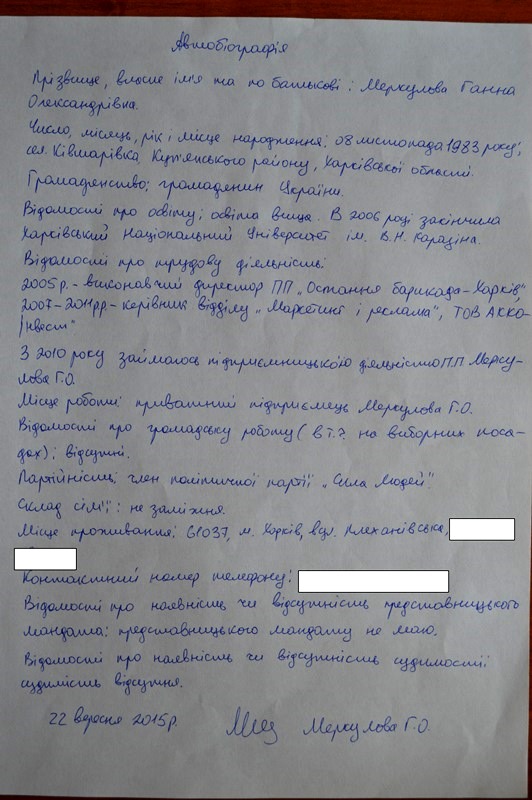 Автобіографія
Прізвище, власне ім'я та по батькові: Меркулова Ганна
Олександрівна.
Число, місяць, рік і місце народження: 08 листопада 1983 року,
сел. Ківшарівка, Куп'янського району, Харківської області.
Громадянство: громадянин України.
Відомості про освіту: освіта вища. В 2006 році закінчила
Харківський Національний Університет ім. В.Н. Каразіна.
Відомості про трудову діяльність:
2005р. - виконавчий директор ПП „Остання барикада-Харків",
2007-2011рр.- керівник відділу „Маркетинг і реклама", ТОВ АККО-
Інвест"
З 2010 року займаюсь підприємницькою діяльністю ПП Мерку-
лова Г.О.
Місце роботи: приватний підприємець Меркулова Г.О.
Відомості про громадську роботу (в т.ч. на виборних поса-
дах): відсутні.
Партійність: член політичної партії „Сила Людей".
Склад сім'ї: не заміжня.
Місце проживання: 61037, м. Харків, вул. Плеханівська,
Контактний номер телефону:
Відомості про наявність чи відсутність представницького
мандата: представницького мандату не маю.
Відомості про наявність чи відсутність судимості:
судимість відсутня.
22 вересня 2015р. Меркулова Г.О.